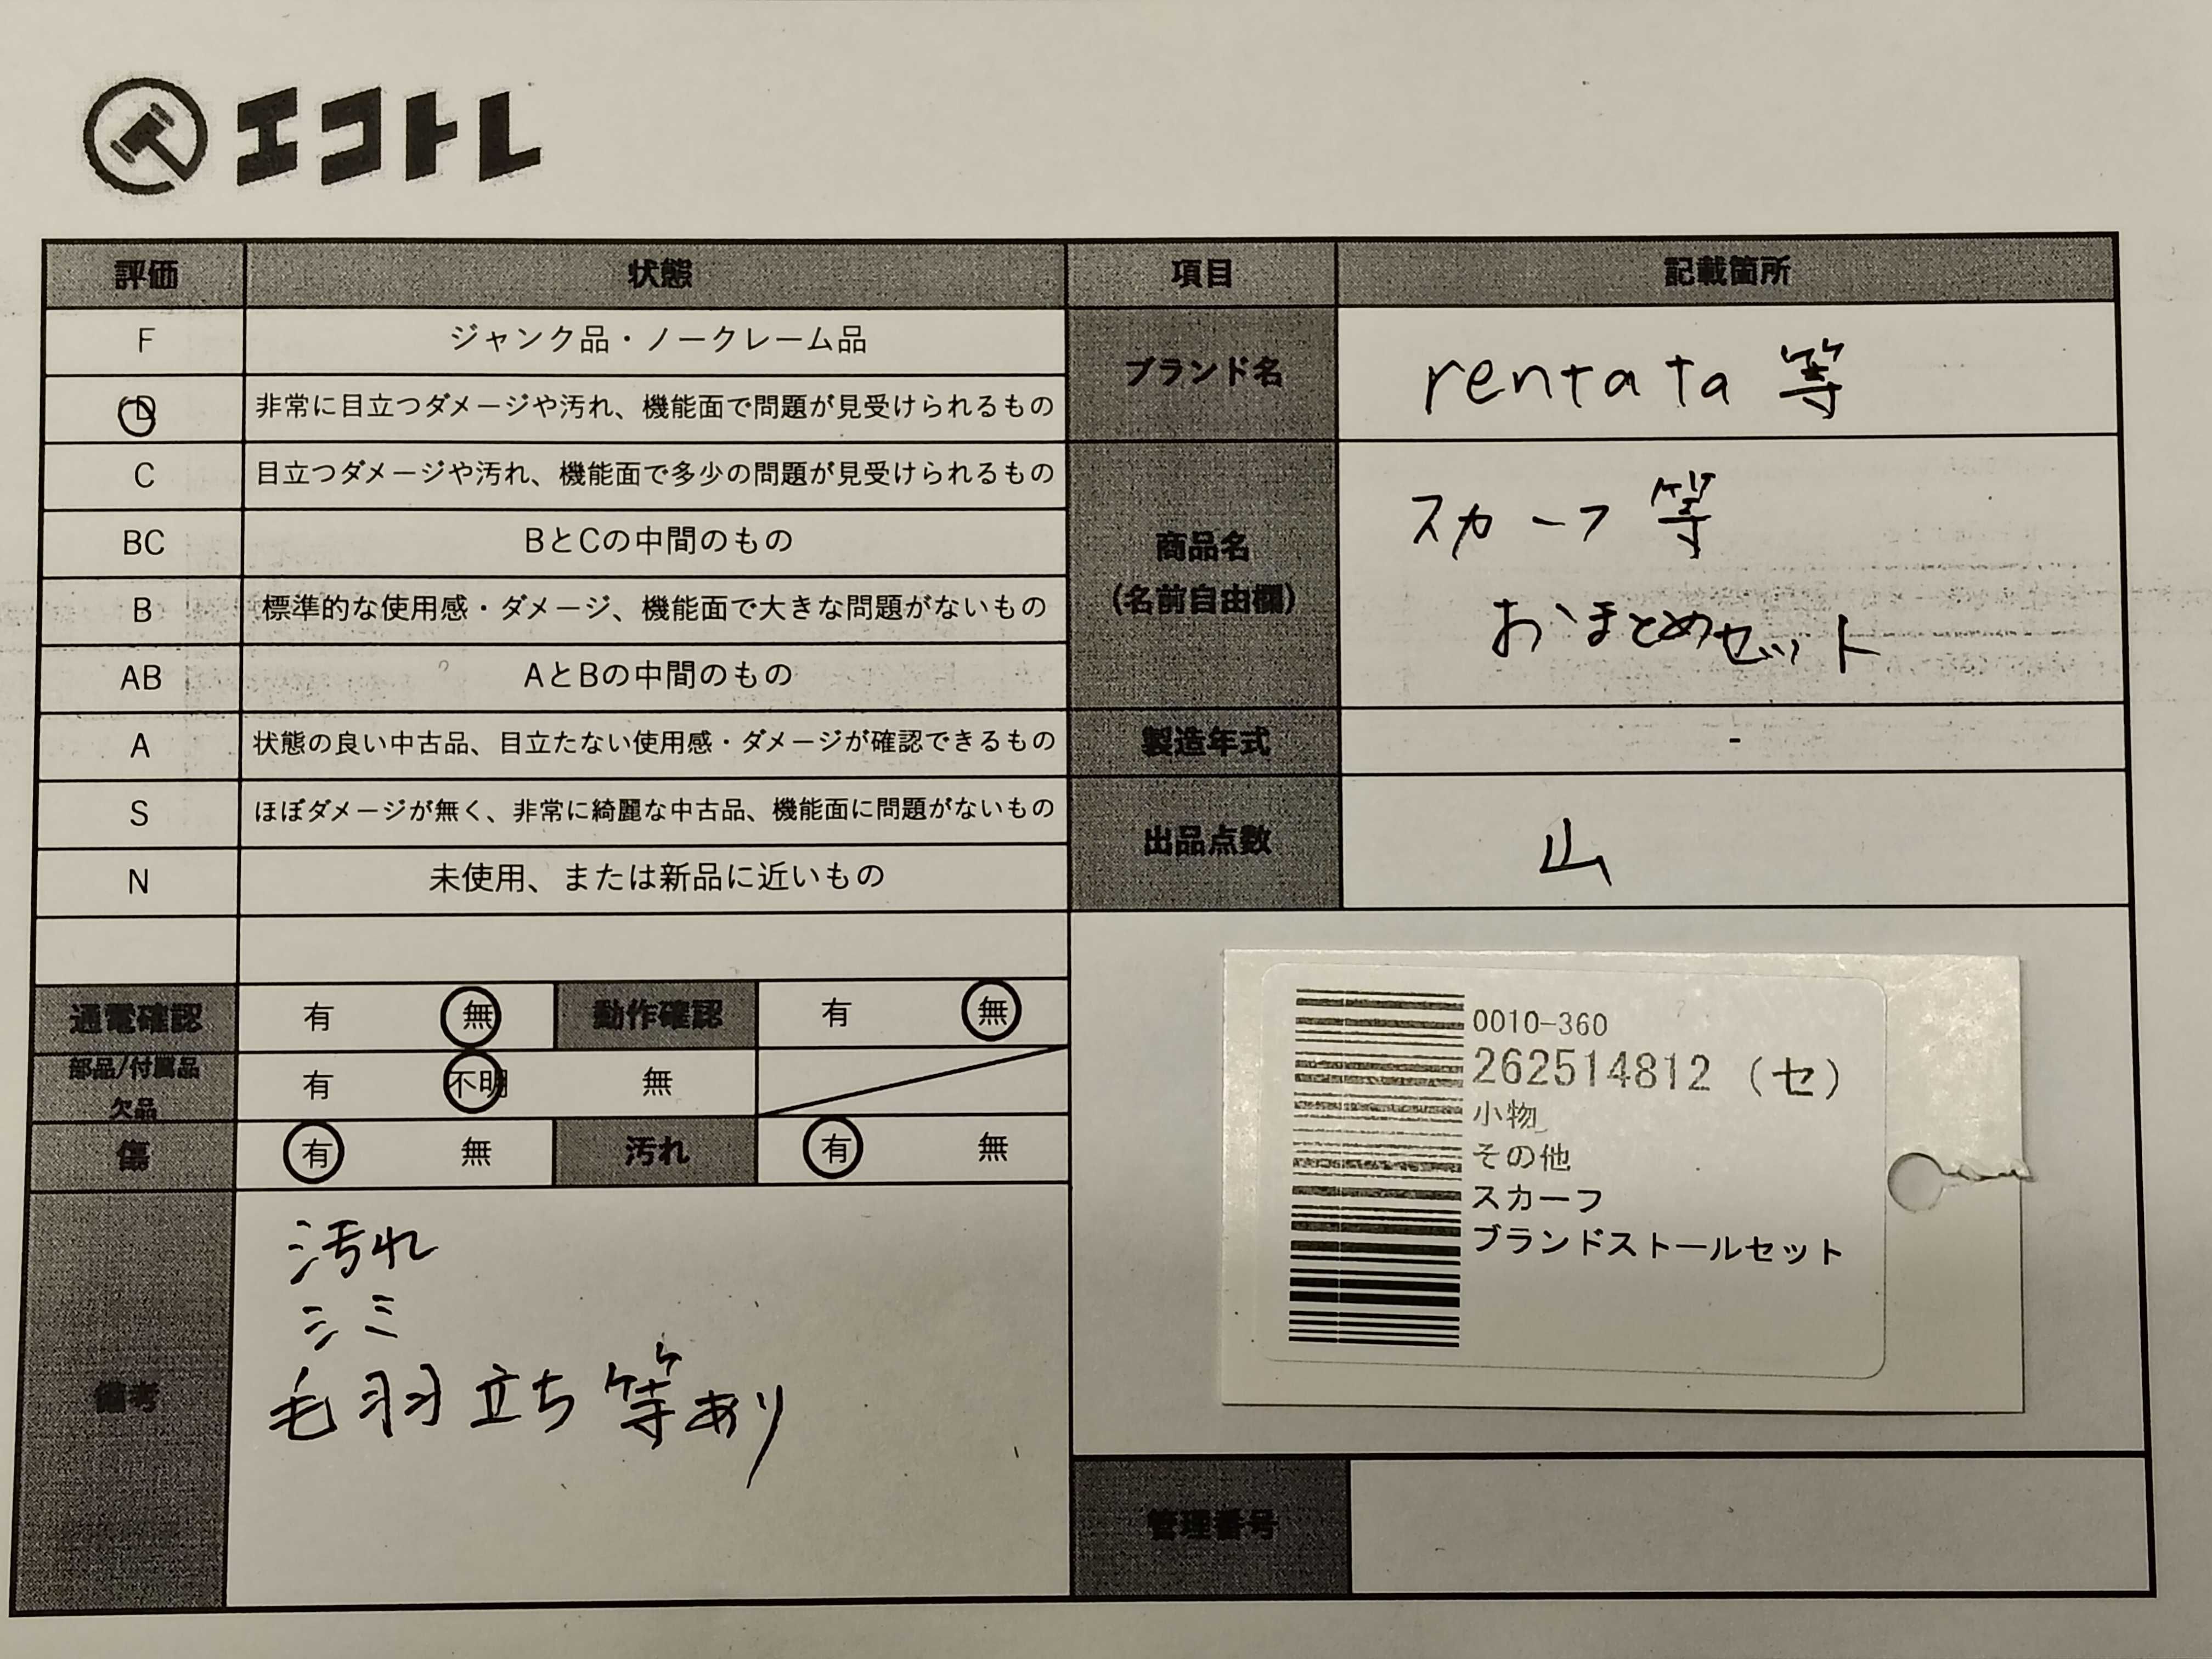 エコトレ
評価 状態 項目 記載箇所
F ジャンク品・ノークレーム品
D 非常に目立つダメージや汚れ、機能面で問題が見受けられるもの
ブランド名 rentata 等
C 目立つダメージや汚れ、機能面で多少の問題が見受けられるもの
BC BとCの中間のもの
B 標準的な使用感・ダメージ、機能面で大きな問題がないもの
AB AとBの中間のもの
商品名
(名前自由欄)
スカーフ 等
おまとめセット
A 状態の良い中古品、目立たない使用感・ダメージが確認できるもの
製造年式 -
S ほぼダメージが無く、非常に綺麗な中古品、機能面に問題がないもの
N 未使用、または新品に近いもの
出品点数 山
通電確認 有 無 動作確認 有 無
部品/付属品
欠品
有 不明 無
傷 有 無 汚れ 有 無
備考
汚れ
シミ
毛羽立ち等あり
0010-360
262514812 (セ)
小物
その他
スカーフ
ブランドストールセット
管理番号